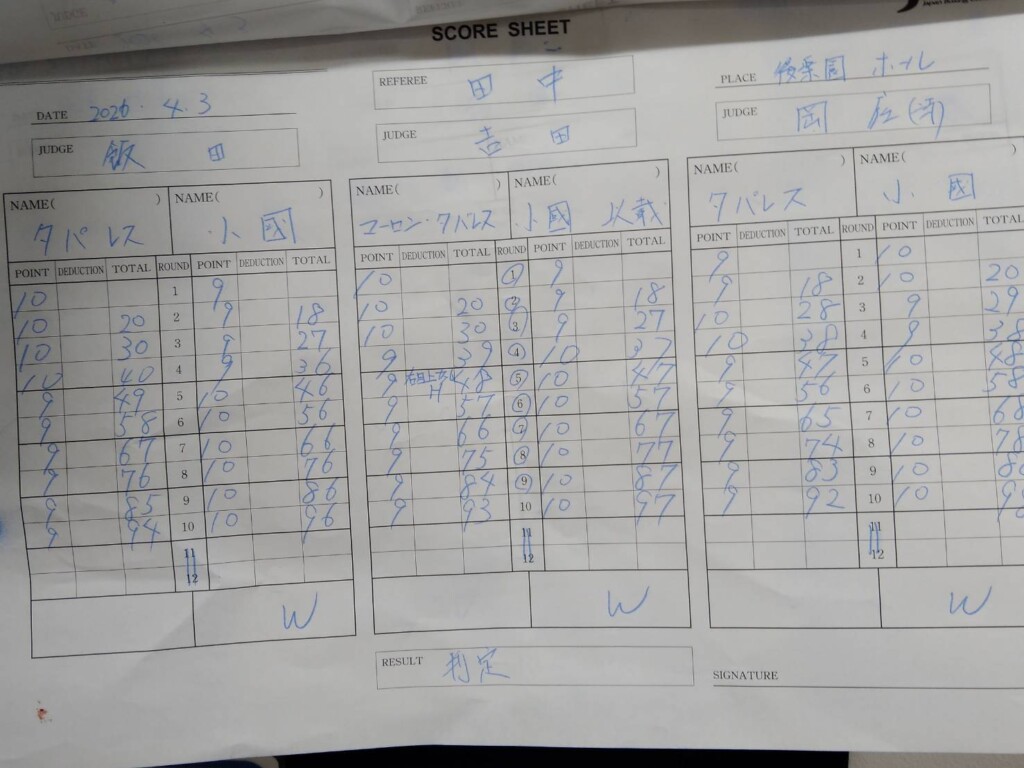 SCORE SHEET
DATE 2026.4.3
REFEREE 田中
PLACE 後楽園 ホール
JUDGE 飯田
JUDGE 吉田
JUDGE 岡
NAME( ) タパレス
NAME( ) 小國
POINT DEDUCTION TOTAL ROUND POINT DEDUCTION TOTAL
10 1 9
10 20 2 9 18
10 30 3 9 27
10 40 4 9 36
9 49 5 10 46
9 58 6 10 56
9 67 7 10 66
9 76 8 10 76
9 85 9 10 86
9 94 10 10 96
11
12
W
NAME( ) マーロン・タパレス
NAME( ) 小國 以載
POINT DEDUCTION TOTAL ROUND POINT DEDUCTION TOTAL
10 1 9
10 20 2 9 18
10 30 3 9 27
9 39 4 10 37
9 48 5 10 47
9 57 6 10 57
9 66 7 10 67
9 75 8 10 77
9 84 9 10 87
9 93 10 10 97
11
12
W
NAME( ) タパレス
NAME( 小國
POINT DEDUCTION TOTAL ROUND POINT DEDUCTION TOTAL
9 1 10
9 18 2 10 20
10 28 3 9 29
10 38 4 9 38
9 47 5 10 48
9 56 6 10 58
9 65 7 10 68
9 74 8 10 78
9 83 9 10
9 92 10 10
11
12
W
RESULT 判定
SIGNATURE